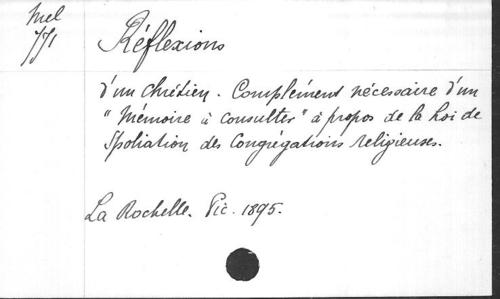 Mel
771
Réflexions
d'un chrétien. Complément nécessaire d'un
"Mémoire à consulter" à propos de la Loi de
Spoliation des Congrégations religieuses.
La Rochelle. Pic. 1895.